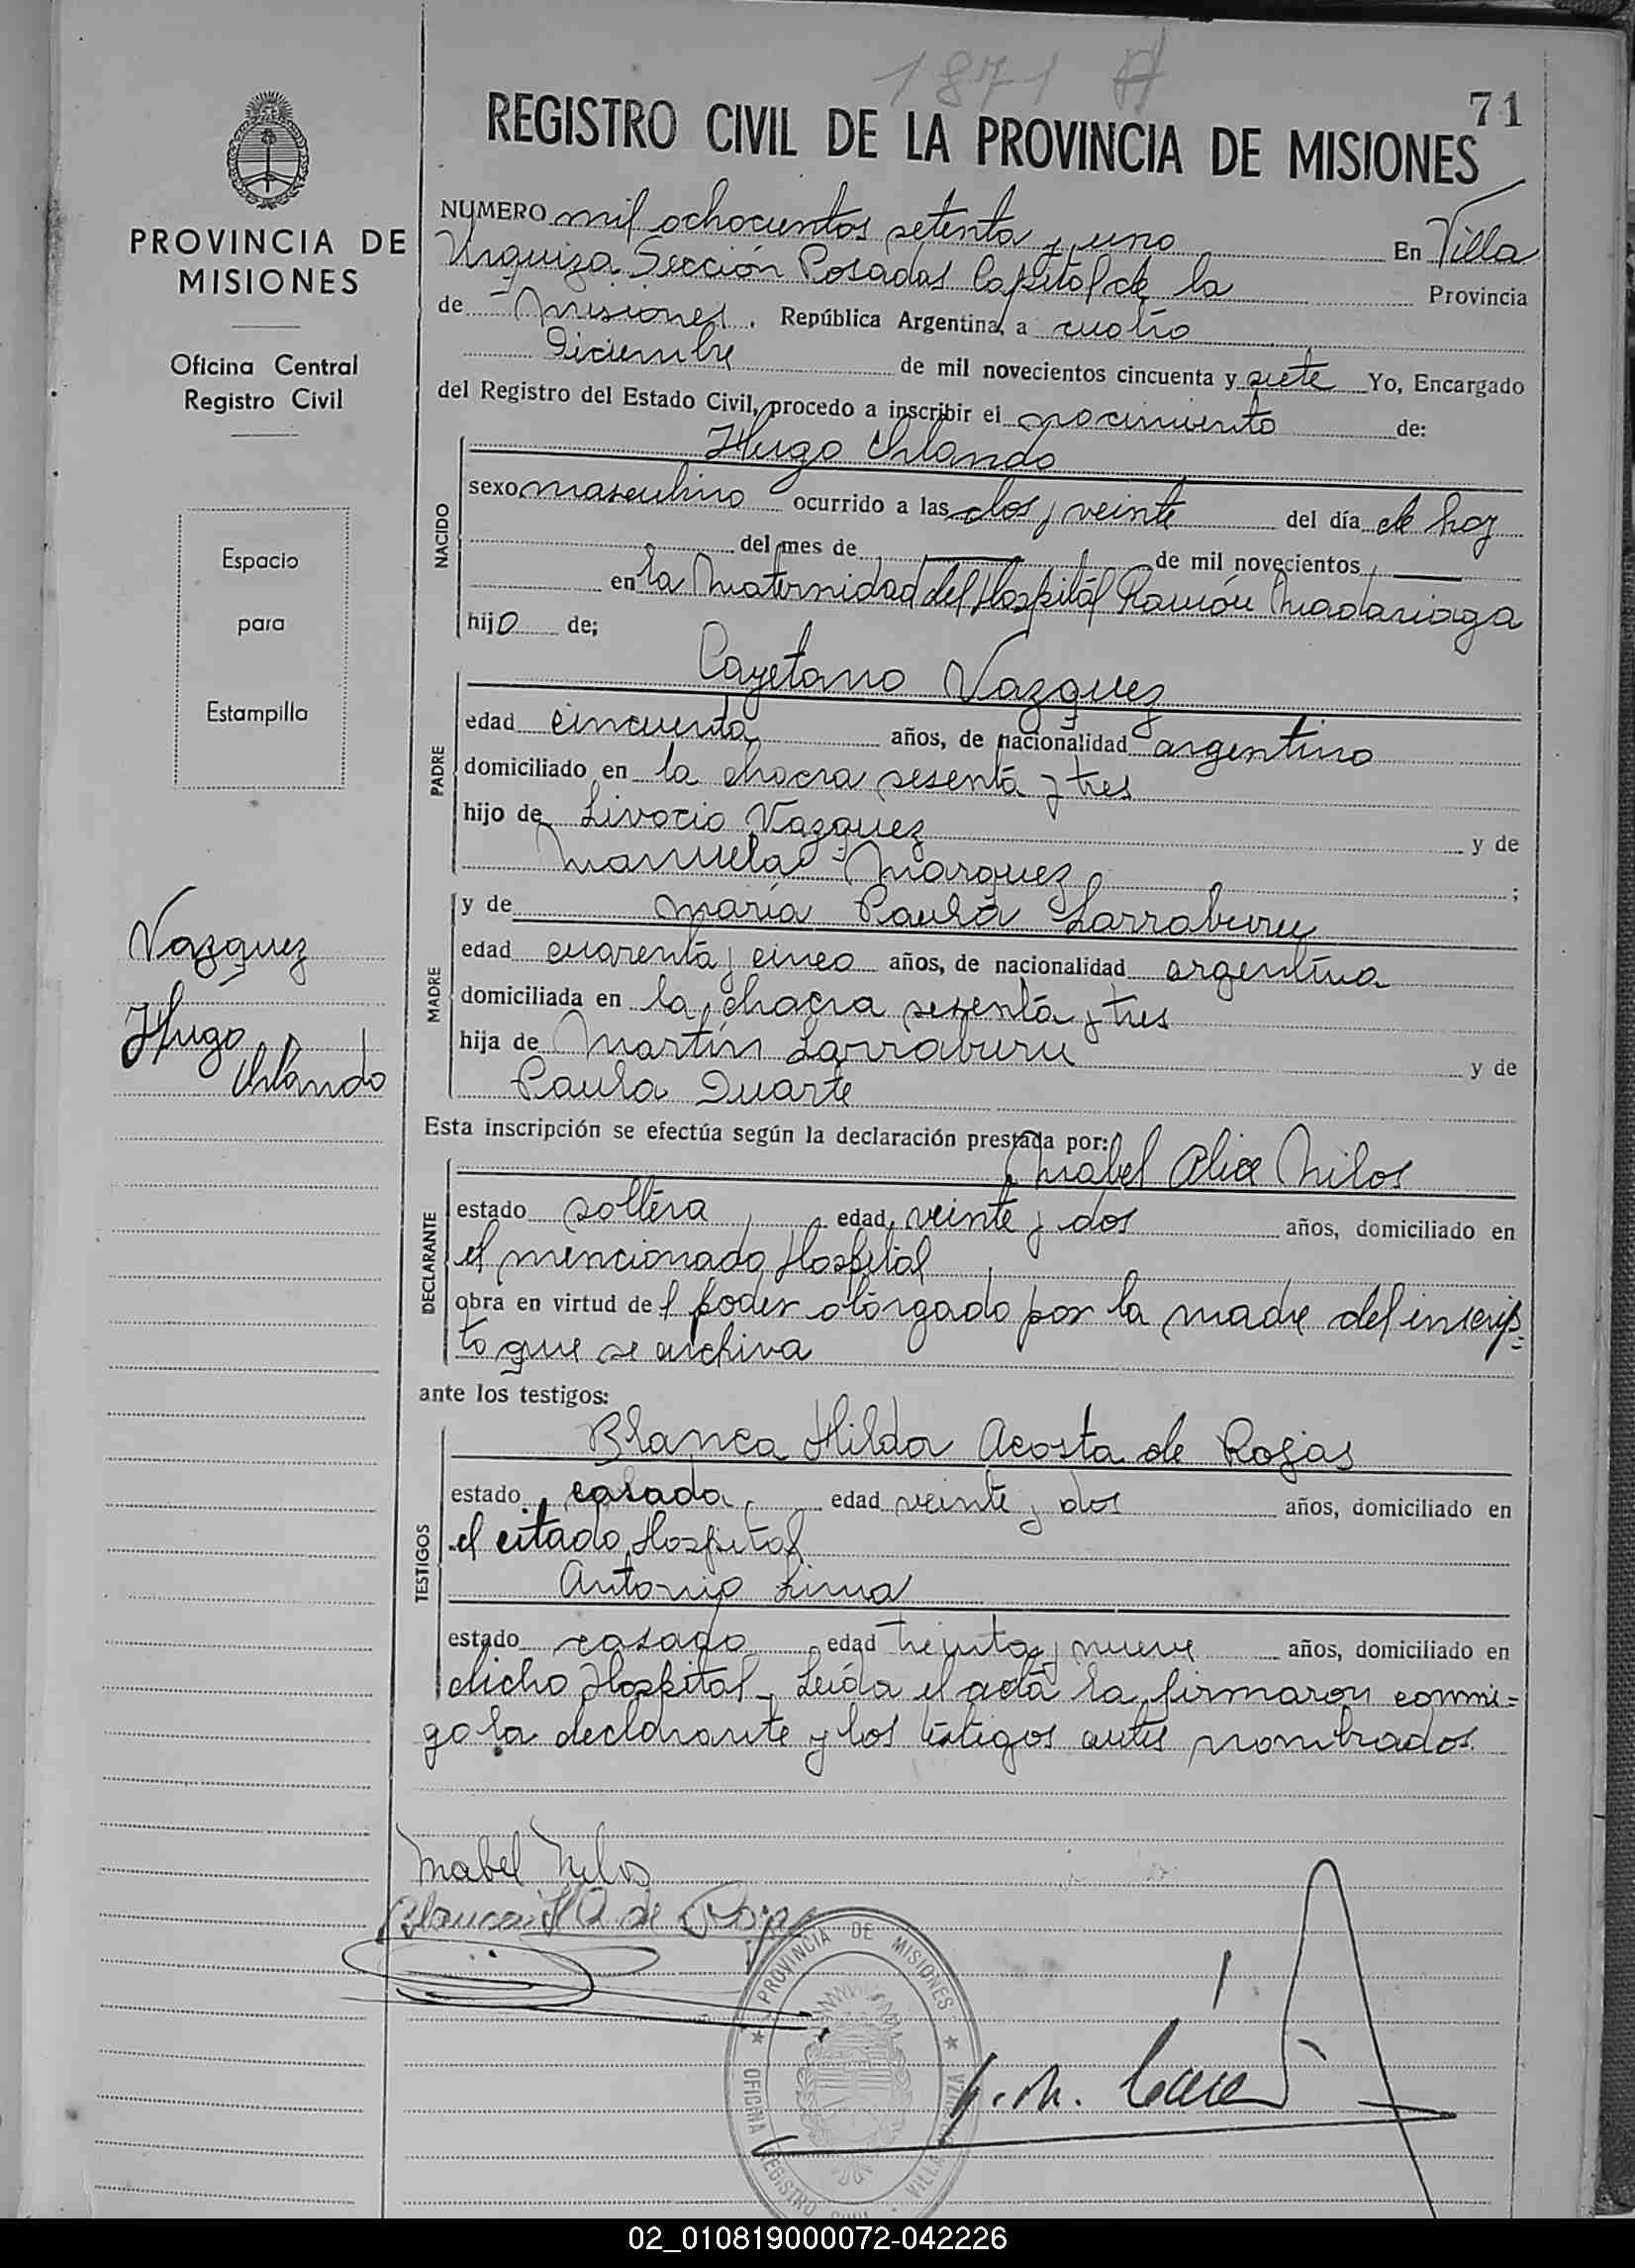 1871 A
71
REGISTRO CIVIL DE LA PROVINCIA DE MISIONES
PROVINCIA DE
MISIONES
Oficina Central
Registro Civil
Espacio
para
Estampilla
Vazquez
Hugo
Orlando
NUMERO mil ochocientos setenta y uno En Villa
Urquiza Sección Posadas Capital de la Provincia
de Misiones. República Argentina, a cuatro
Diciembre de mil novecientos cincuenta y siete Yo, Encargado
del Registro del Estado Civil, procedo a inscribir el nacimiento de:
NACIDO
Hugo Orlando
sexo masculino ocurrido a las dos y veinte del día de hoy
del mes de de mil novecientos
en la Maternidad del Hospital Ramón Madariaga
hijo de;
PADRE
Cayetano Vazquez
edad cincuenta años, de nacionalidad argentino
domiciliado en la chacra sesenta y tres
hijo de Livorio Vazquez y de
Manuela Marquez ;
MADRE
y de María Paula Larraburu
edad cuarenta y cinco años, de nacionalidad argentina
domiciliada en la chacra sesenta y tres
hija de Martín Larraburu y de
Paula Duarte
Esta inscripción se efectúa según la declaración prestada por:
DECLARANTE
Mabel Alice Milos
estado soltera edad veinte y dos años, domiciliado en
el mencionado Hospital
obra en virtud del poder otorgado por la madre del inscrip=
to que se archiva
ante los testigos:
TESTIGOS
Blanca Hilda Acosta de Rojas
estado casada edad veinte y dos años, domiciliado en
el citado Hospital
Antonio Lima
estado casado edad treinta y nueve años, domiciliado en
dicho Hospital. Leída el acta la firmaron conmi=
go la declarante y los testigos antes nombrados.
Mabel Milos
Blanca H A de Rojas
PROVINCIA DE MISIONES
OFICINA REGISTRO CIVIL VILLA URQUIZA
02_010819000072-042226